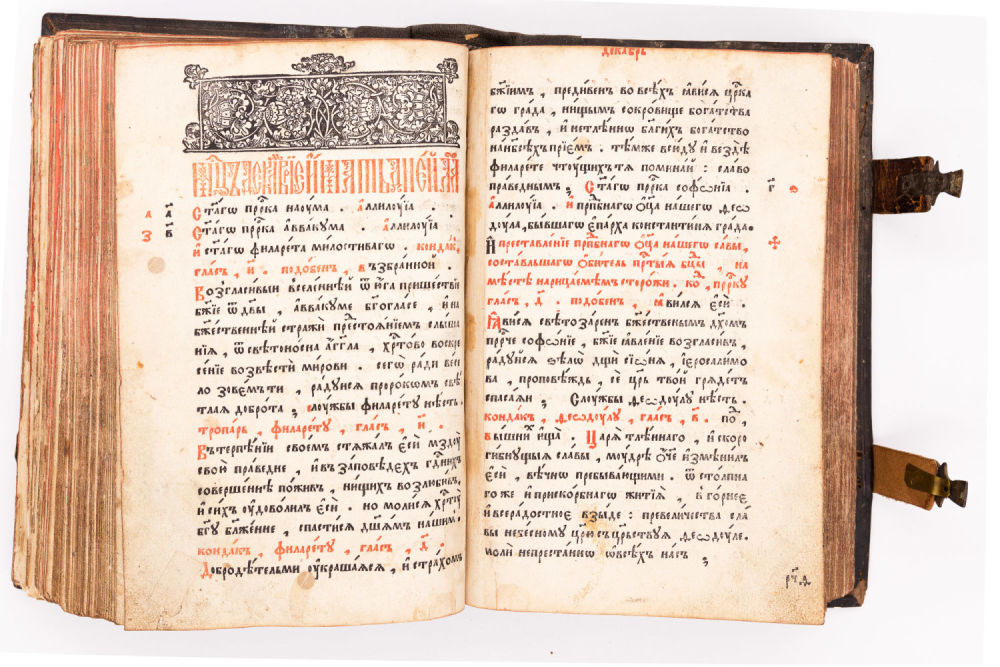 а҃ Ст҃а́гѡ прⷪ҇ро́ка нао́ума . а҆ллилꙋ́їа . .
з в҃ Ст҃а́гѡ прⷪ҇ро́ка а҆вваку́ма . а҆ллилꙋ́їа
и҆ ст҃а́гѡ филаре́та милости́вагѡ . конда́к,
гла́съ , и҃ . подо́бенъ , възбра́нной .
Возгласи́вый вселе́ннѣй ѿ ю҆́га прише́ствїе
бж҃їе ѿ дв҃ы , а҆вваку́ме бг҃огла́се , и҆ на
бж҃е́ственнѣй стра́жи престоѧ́нїемъ слы́ша
нїѧ , ѿ свѣтоно́сна а҆́гг҃ла , хрⷭ҇то́во воскрⷭ҇е
се́нїе возвѣсти́ мирови . сегѡ̀ ра́ди ве́се
ло зове́мъ ти , ра́дуйсѧ проро́кѡмъ свѣ́
тлаѧ добро́та , слꙋ́жбы филаре́ту нѣ́сть .
тропа́рь , филаре́ту , гла́съ , д҃ .
Въ терпѣ́нїи свое́мъ стѧжа́лъ є҆сѝ мздꙋ̀
свою̀ пра́ведне , и҆ в за́повѣдехъ гⷭ҇нихъ
соверше́ннѣ пожи́въ , ни́щихъ возлюби́въ,
и҆ си́хъ ѹ҆дово́лилъ є҆сѝ . но моли́сѧ хрⷭ҇тꙋ̀
бг҃ꙋ бл҃же́нне , спасти́сѧ дш҃а́мъ на́шимъ .
конда́к , филаре́ту , гла́съ , д҃ .
Добродѣ́тельми ѹ҆краша́ѧсѧ , и҆ стра́хомъ
дека́брь
бж҃їимъ , преди́венъ во всѣ́хъ ꙗ҆ви́сѧ цр҃ска
гѡ гра́да , ни́щымъ сокро́вище бога́тства
разда́въ , и҆ нетлѣ́ннѡ бл҃ги́хъ бога́тство
на нб҃сѣ́хъ прїе́мъ . тѣ́мже всю́ду и҆ вездѣ̀
филаре́те чтꙋ́щихъ тѧ̀ помина́й : сла́во
пра́веднымъ . Ст҃а́гѡ прⷪ҇ро́ка софѡ́нїа . г҃
а҆ллилꙋ́їа . и҆ прпⷣбнаго ѻ҆ц҃а̀ на́шегѡ ѳеѡ
до́ула, бы́вшаго є҆па́рха константи́на гра́да .
И҆ преставле́нїе прпⷣбнаго ѻ҆ц҃а̀ на́шего са́вы,
соста́вльшаго ѻ҆би́тель прⷱ҇тыѧ бцⷣы , на
мѣ́стѣ нарица́емѣмъ сторо́жи . кⷪ҇ , прⷪ҇рку
гла́съ , д҃ . подо́бенъ , ꙗ҆ви́лсѧ є҆сѝ .
Ꙗ҆ви́сѧ свѣтоза́ренъ бж҃е́ственымъ дх҃омъ
прⷪ҇ро́че софѡ́нїе , бж҃їе ꙗ҆вле́нїе возгласи́въ ,
ра́дуйсѧ ѕѣлѡ̀ дщѝ сїѡ́нѧ , і҆еросали́мо
ва , проповѣ́ждь , се́ цр҃ь тво́й грѧде́тъ
спаса́ѧи ; Слꙋ́жбы ѳеѡдо́улꙋ нѣ́сть .
конда́къ , ѳеѡдо́улꙋ , гла́съ , в҃ . пⷪ҇ ,
вы́шнихъ и҆ща̀ ; Царѧ̀ тлѣ́ннаго , и҆ ско́ро
ги́бнущыѧ сла́вы , мо́удрѣ ѻ҆́ч҃е и҆змѣни́лъ
є҆сѝ , вѣ́чнѡ пребыва́ющими . ѿ столпна
го же и҆ приско́рбнагѡ житїѧ̀ , в го́рнее
и҆ всера́достное взы́де : превели́чества сла́
вы нб҃е́сному цр҃ю̀ съца́рствꙋѧ , ѳеѡдо́уле .
молѝ непреста́ннѡ ѡ҆ всѣ́хъ на́съ ;